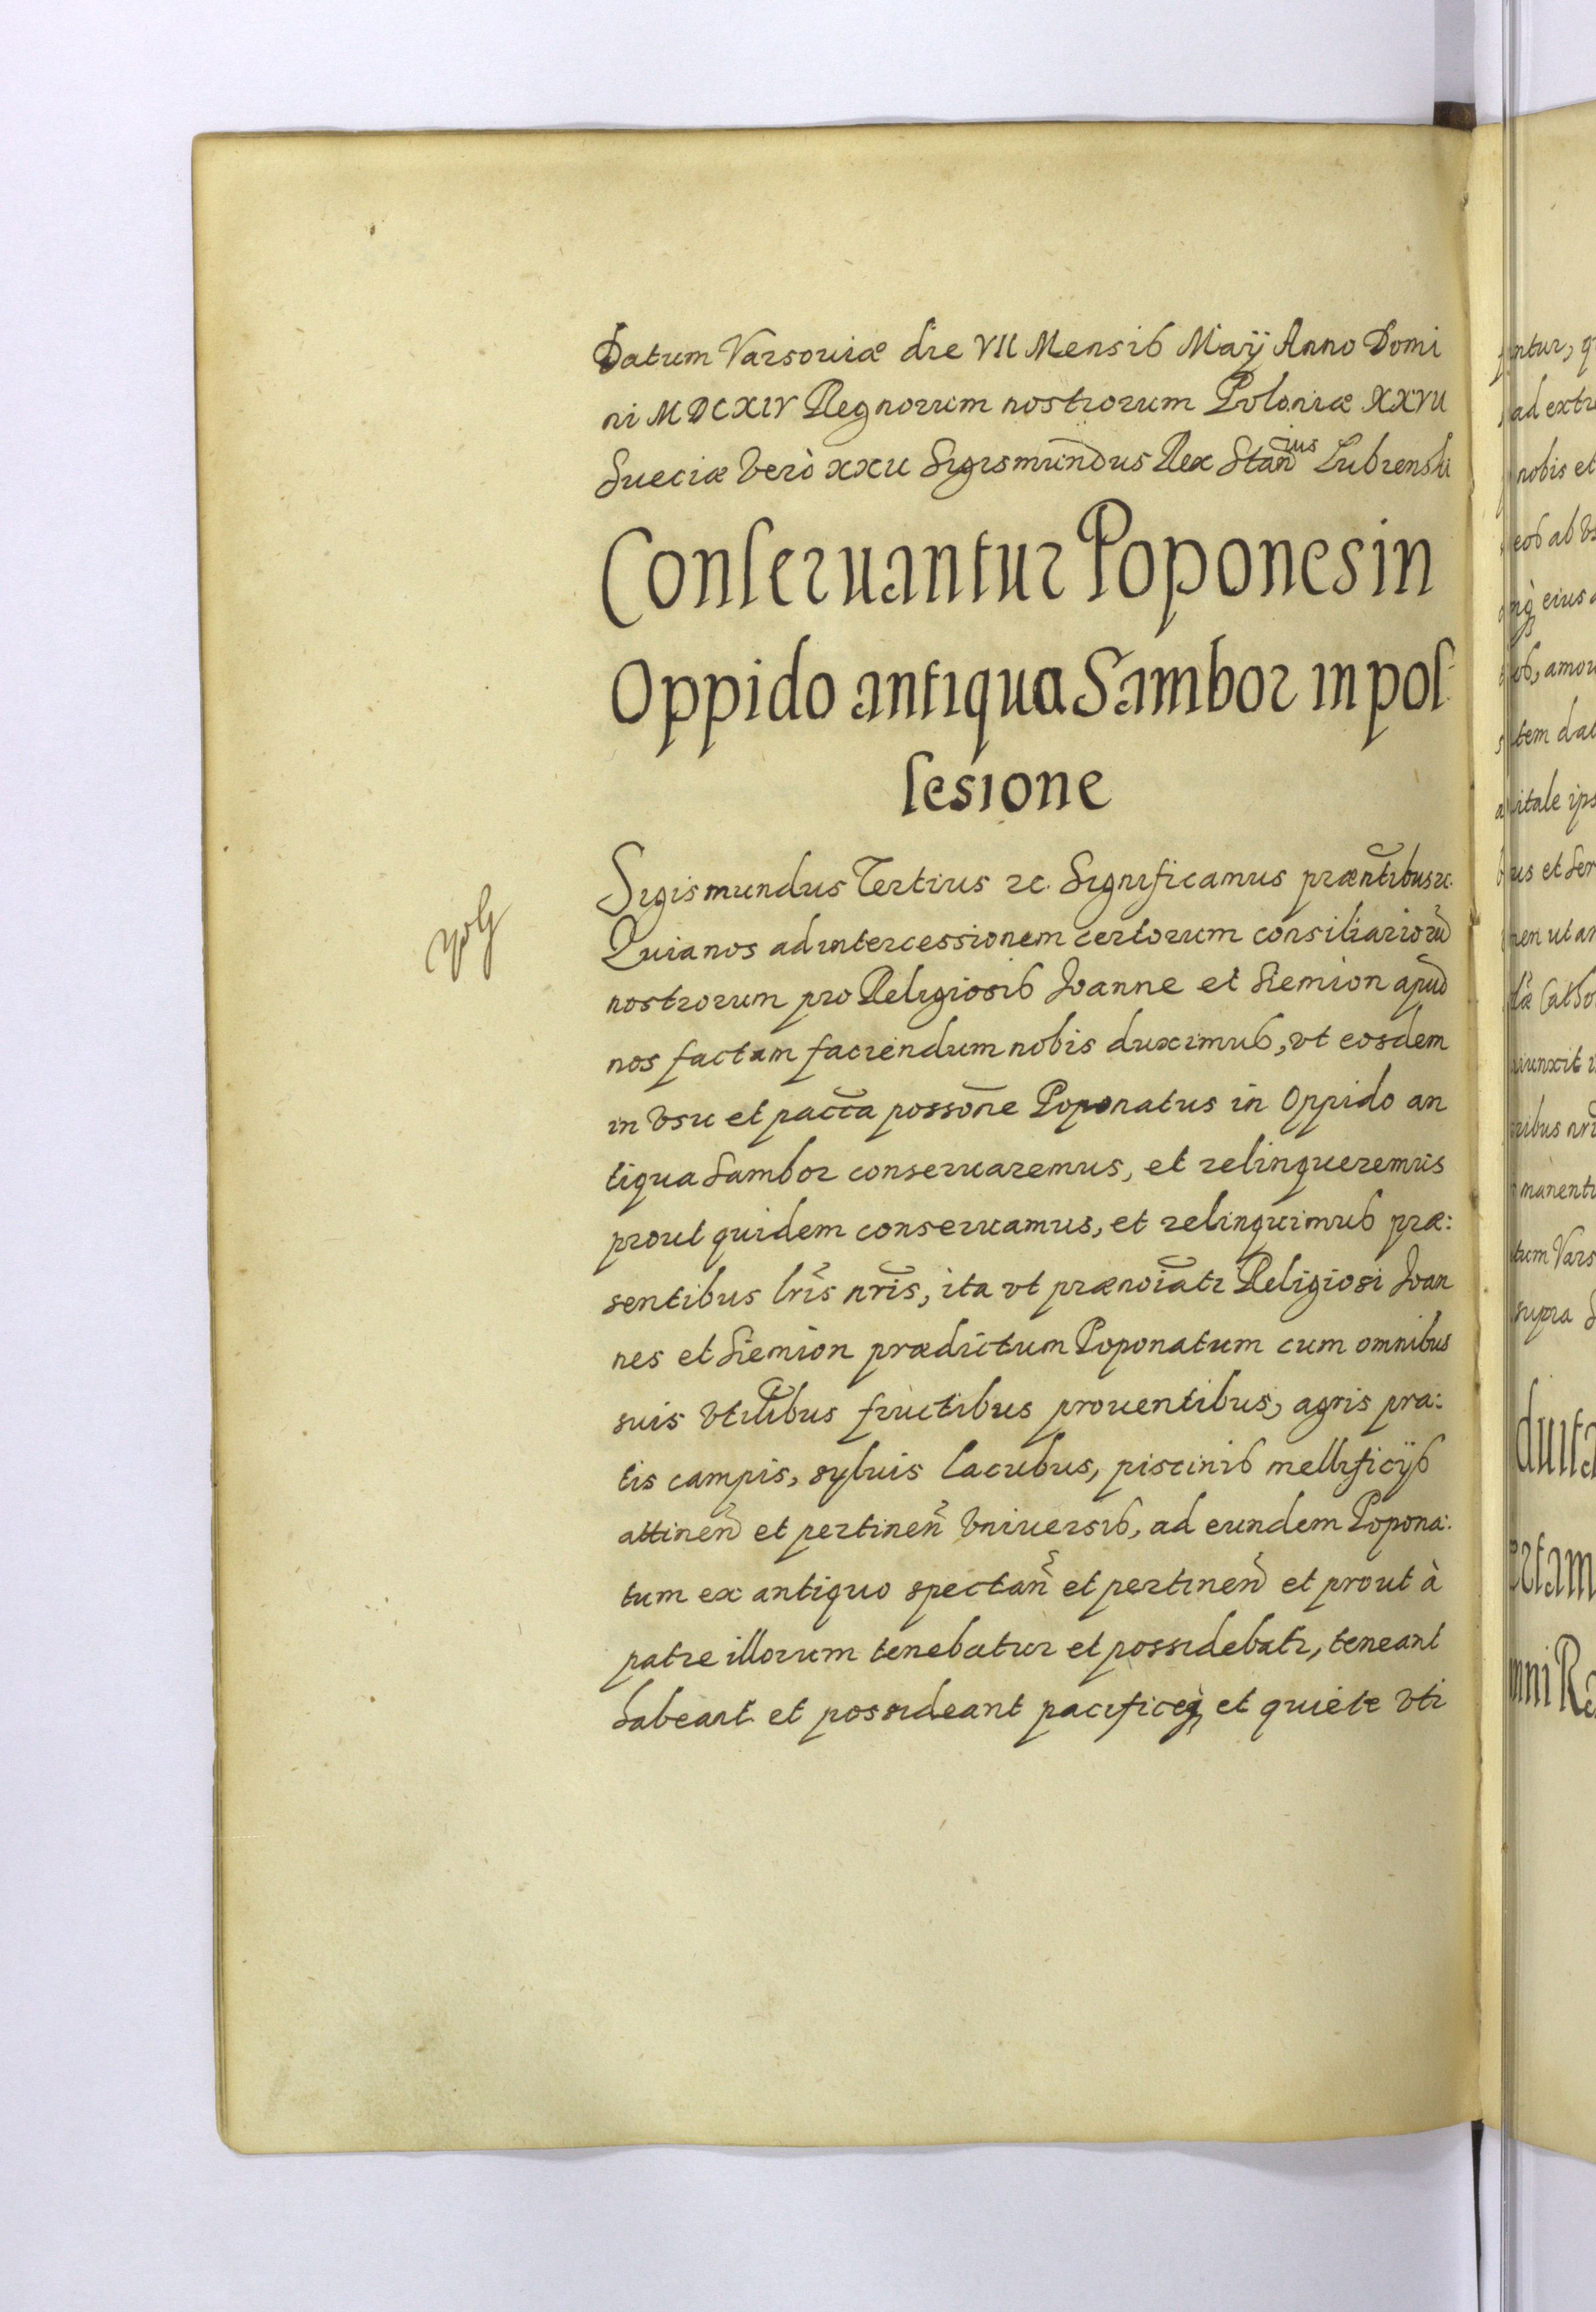 Datum Varsouiæ die VII Mensis Maÿ Anno Domi
ni MDCXIV Regnorum nostrorum Poloniæ XXVII
Sueciæ verò XXII Sigismundus Rex Stan̄ius Lubienski
Conseruantur Popones in
Oppido antiqua Sambor in pos-
sesione
Sigismundus Tertius &c. Significamus præn̄tibus &c.
Quia nos ad intercessionem certorum consiliariorū
nostrorum pro Religiosis Joanne et Siemion apud
nos factam faciendum nobis duximus, vt eosdem
in vsu et pac̄ca posson̄e Poponatus in Oppido an
tiqua Sambor conseruaremus, et relinqueremus
prout quidem conseruamus, et relinquimus præ:
sentibus lr̄is nr̄is, ita vt prænoīati Religiosi Joan
nes et Siemion prædictum Poponatum cum omnibus
suis vtilibus fructibus prouentibus, agris pra:
tis campis, syluis lacubus, piscinis mellificijs
attinen̄ et pertinen̄ vniuersis, ad eundem Popona:
tum ex antiquo spectan̄ et pertinen̄ et prout à
patre illorum tenebatur et possidebatr, teneant
habeant et possideant pacificeq; et quiete vti
ntur,
ad extr
nobis et
eos ab
eius
amo
tem
itale ips
us et ser
men ut
Catho
iunxit
ribus
manent
tum Vars
supra